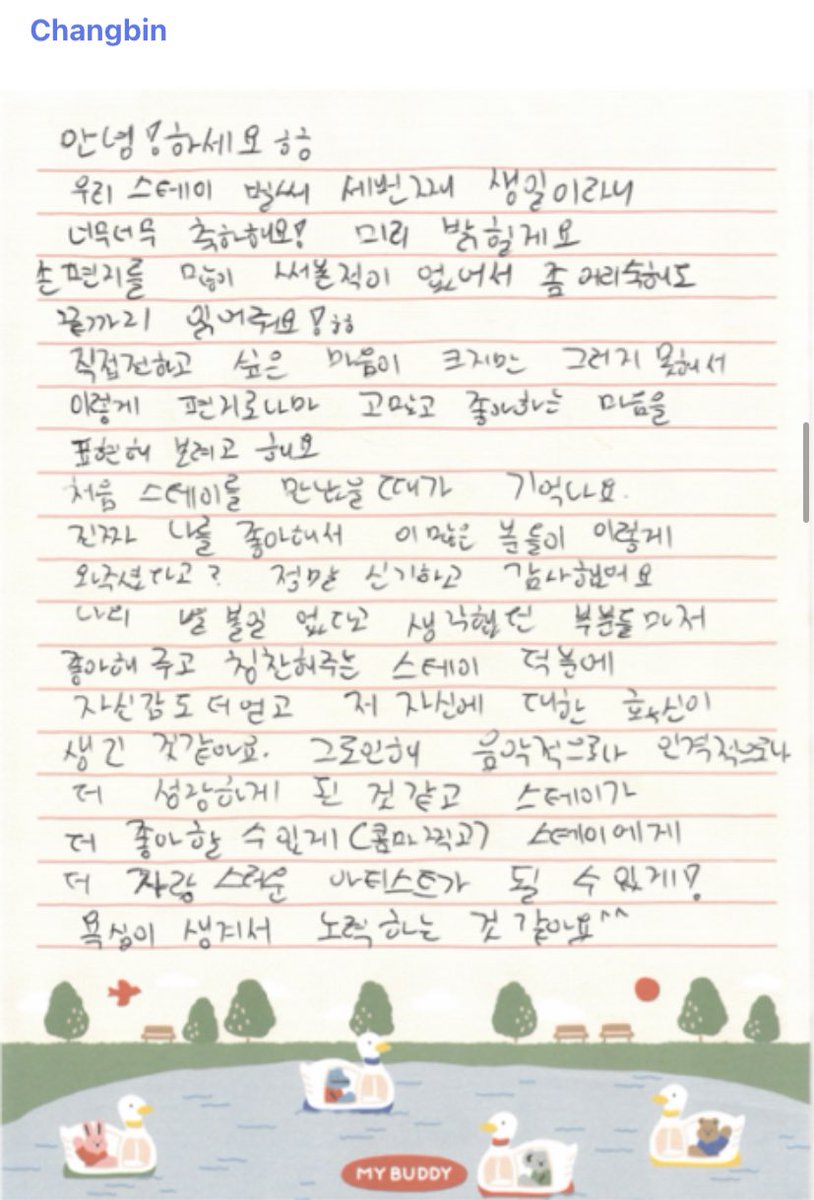 Changbin
안녕!하세요 ㅎㅎ
우리 스테이 벌써 세번째 생일이라니
너무너무 축하해요! 미리 밝힐게요
손편지를 많이 써본적이 없어서 좀 어리숙해도
끝까지 읽어줘요!ㅎㅎ
직접전하고 싶은 마음이 크지만 그러지 못해서
이렇게 편지로나마 고맙고 좋아하는 마음을
표현해 보려고 해요
처음 스테이를 만났을 때가 기억나요.
진짜 나를 좋아해서 이 많은 분들이 이렇게
와주셨다고? 정말 신기하고 감사했어요
나의 별 볼일 없다고 생각했던 부분들마저
좋아해 주고 칭찬해주는 스테이 덕분에
자신감도 더 얻고 저 자신에 대한 확신이
생긴 것같아요. 그로인해 음악적으로나 인격적으로나
더 성장하게 된 것 같고 스테이가
더 좋아할 수 있게 (콤마 찍고) 스테이에게
더 자랑 스러운 아티스트가 될 수 있게!
욕심이 생겨서 노력하는 것 같아요^^
MY BUDDY